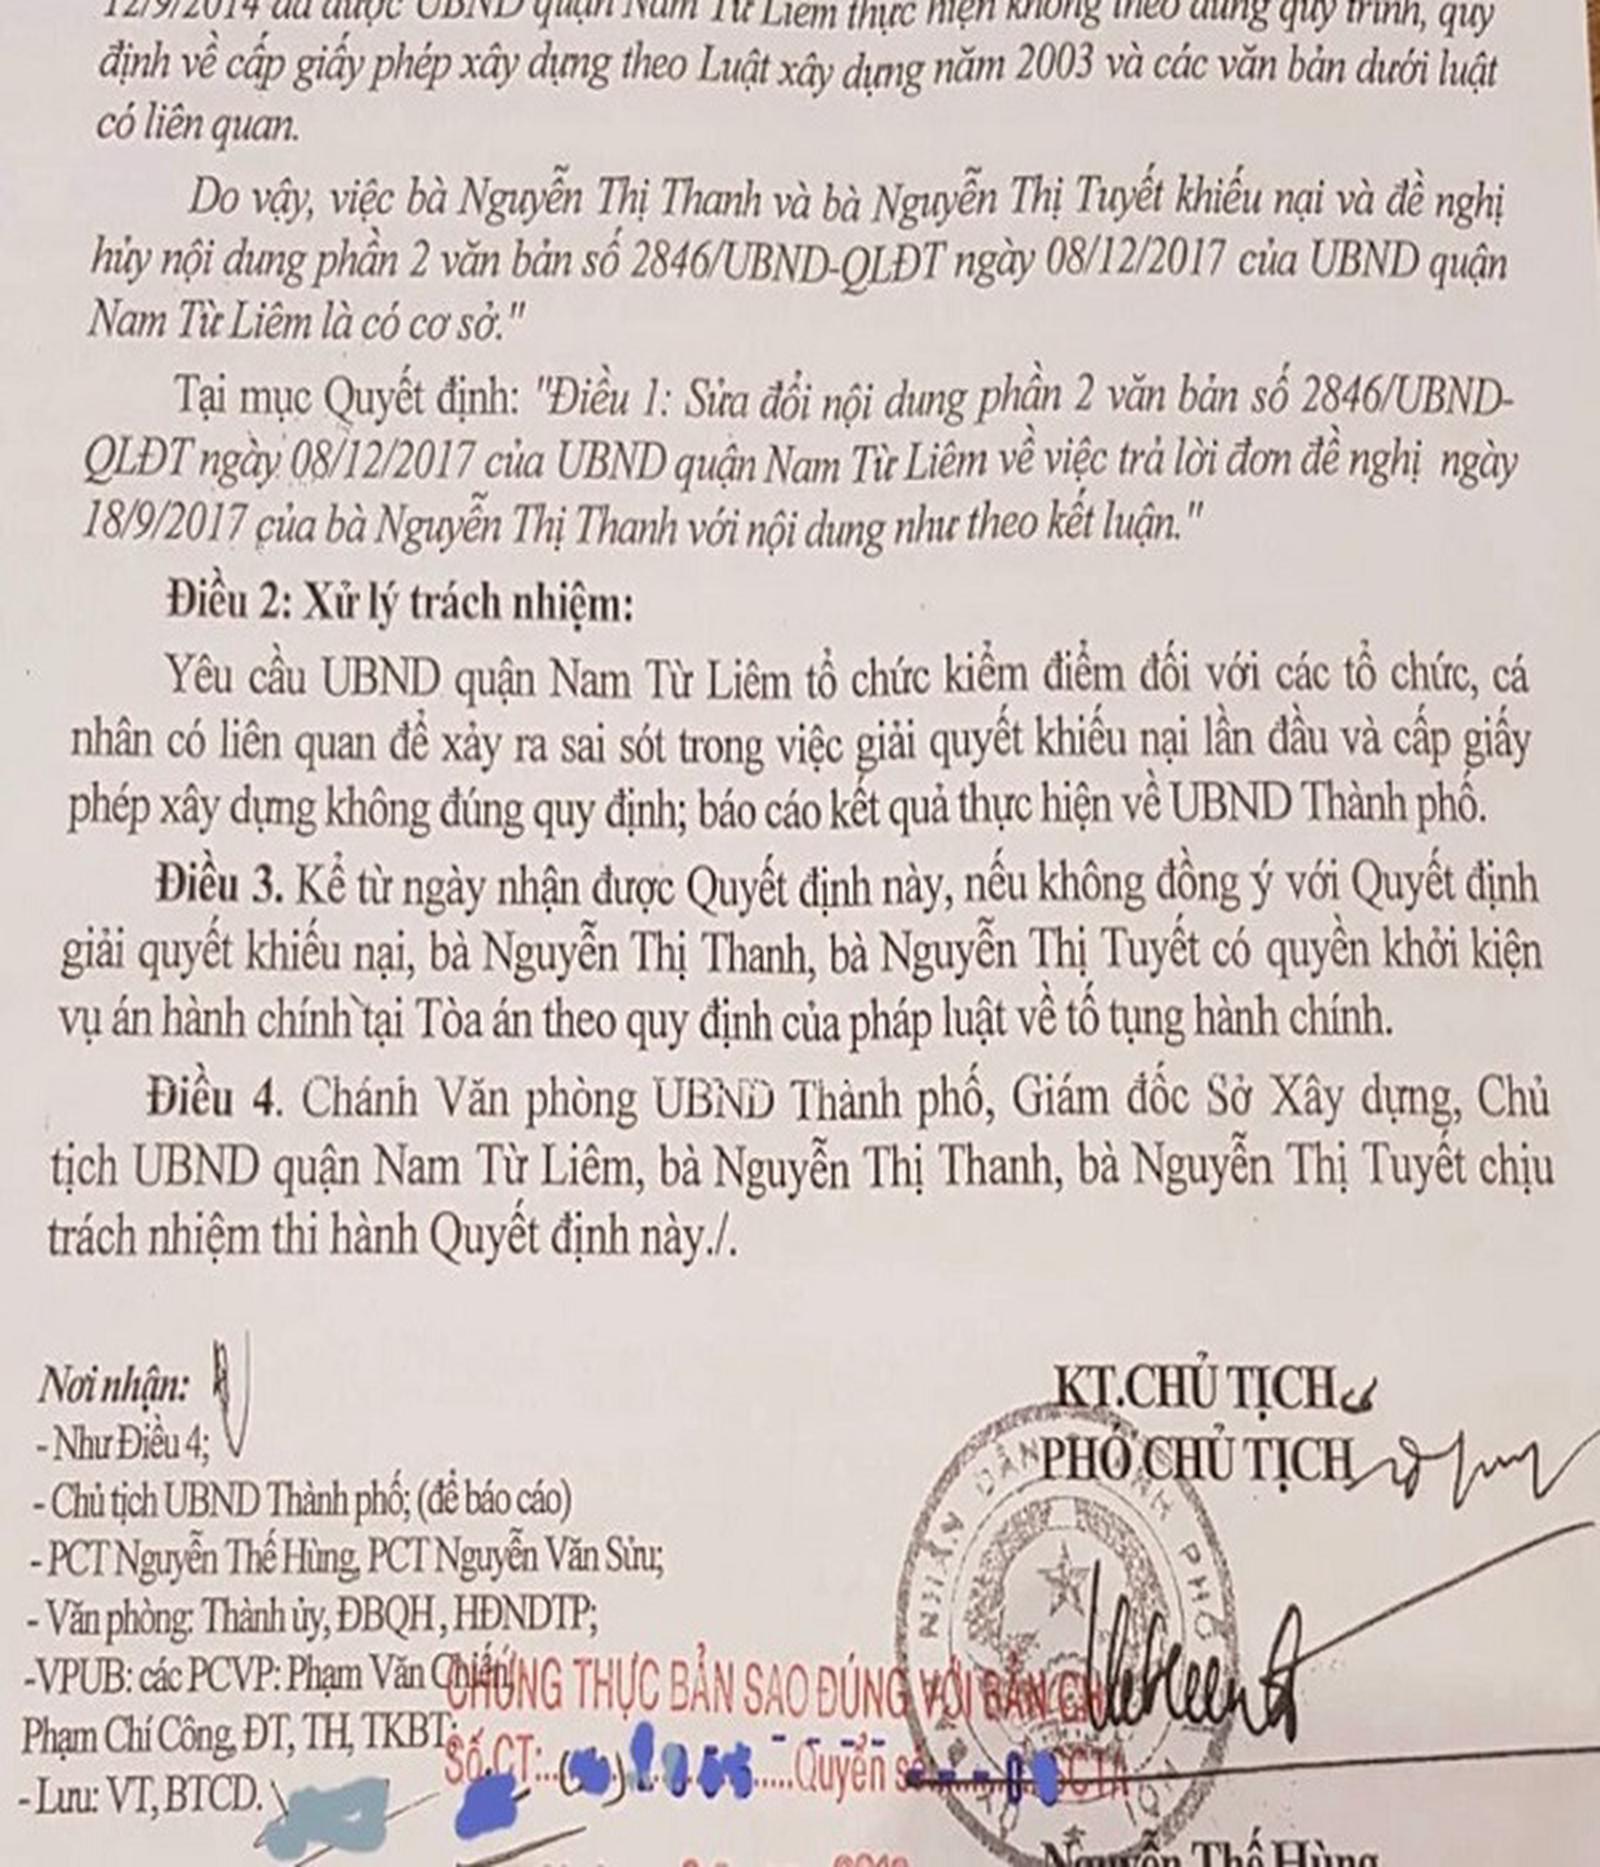 12/9/2014 đã được UBND quận Nam Từ Liêm thực hiện không theo đúng quy trình, quy
định về cấp giấy phép xây dựng theo Luật xây dựng năm 2003 và các văn bản dưới luật
có liên quan.
Do vậy, việc bà Nguyễn Thị Thanh và bà Nguyễn Thị Tuyết khiếu nại và đề nghị
hủy nội dung phần 2 văn bản số 2846/UBND-QLĐT ngày 08/12/2017 của UBND quận
Nam Từ Liêm là có cơ sở."
Tại mục Quyết định: "Điều 1: Sửa đổi nội dung phần 2 văn bản số 2846/UBND-
QLĐT ngày 08/12/2017 của UBND quận Nam Từ Liêm về việc trả lời đơn đề nghị ngày
18/9/2017 của bà Nguyễn Thị Thanh với nội dung như theo kết luận."
Điều 2: Xử lý trách nhiệm:
Yêu cầu UBND quận Nam Từ Liêm tổ chức kiểm điểm đối với các tổ chức, cá
nhân có liên quan để xảy ra sai sót trong việc giải quyết khiếu nại lần đầu và cấp giấy
phép xây dựng không đúng quy định; báo cáo kết quả thực hiện về UBND Thành phố.
Điều 3. Kể từ ngày nhận được Quyết định này, nếu không đồng ý với Quyết định
giải quyết khiếu nại, bà Nguyễn Thị Thanh, bà Nguyễn Thị Tuyết có quyền khởi kiện
vụ án hành chính tại Tòa án theo quy định của pháp luật về tố tụng hành chính.
Điều 4. Chánh Văn phòng UBND Thành phố, Giám đốc Sở Xây dựng, Chủ
tịch UBND quận Nam Từ Liêm, bà Nguyễn Thị Thanh, bà Nguyễn Thị Tuyết chịu
trách nhiệm thi hành Quyết định này./.
Nơi nhận:
- Như Điều 4;
- Chủ tịch UBND Thành phố; (để báo cáo)
- PCT Nguyễn Thế Hùng, PCT Nguyễn Văn Sửu;
- Văn phòng: Thành ủy, ĐBQH, HĐNDTP;
-VPUB: các PCVP: Phạm Văn Chiến,
Phạm Chí Công, ĐT, TH, TKBT;
- Lưu: VT, BTCD.
KT.CHỦ TỊCH
PHÓ CHỦ TỊCH
NHÂN DÂN THÀNH PHỐ
CHỨNG THỰC BẢN SAO ĐÚNG VỚI BẢN CH
Số CT:
Quyển số
SCT
Nguyễn Thế Hùng